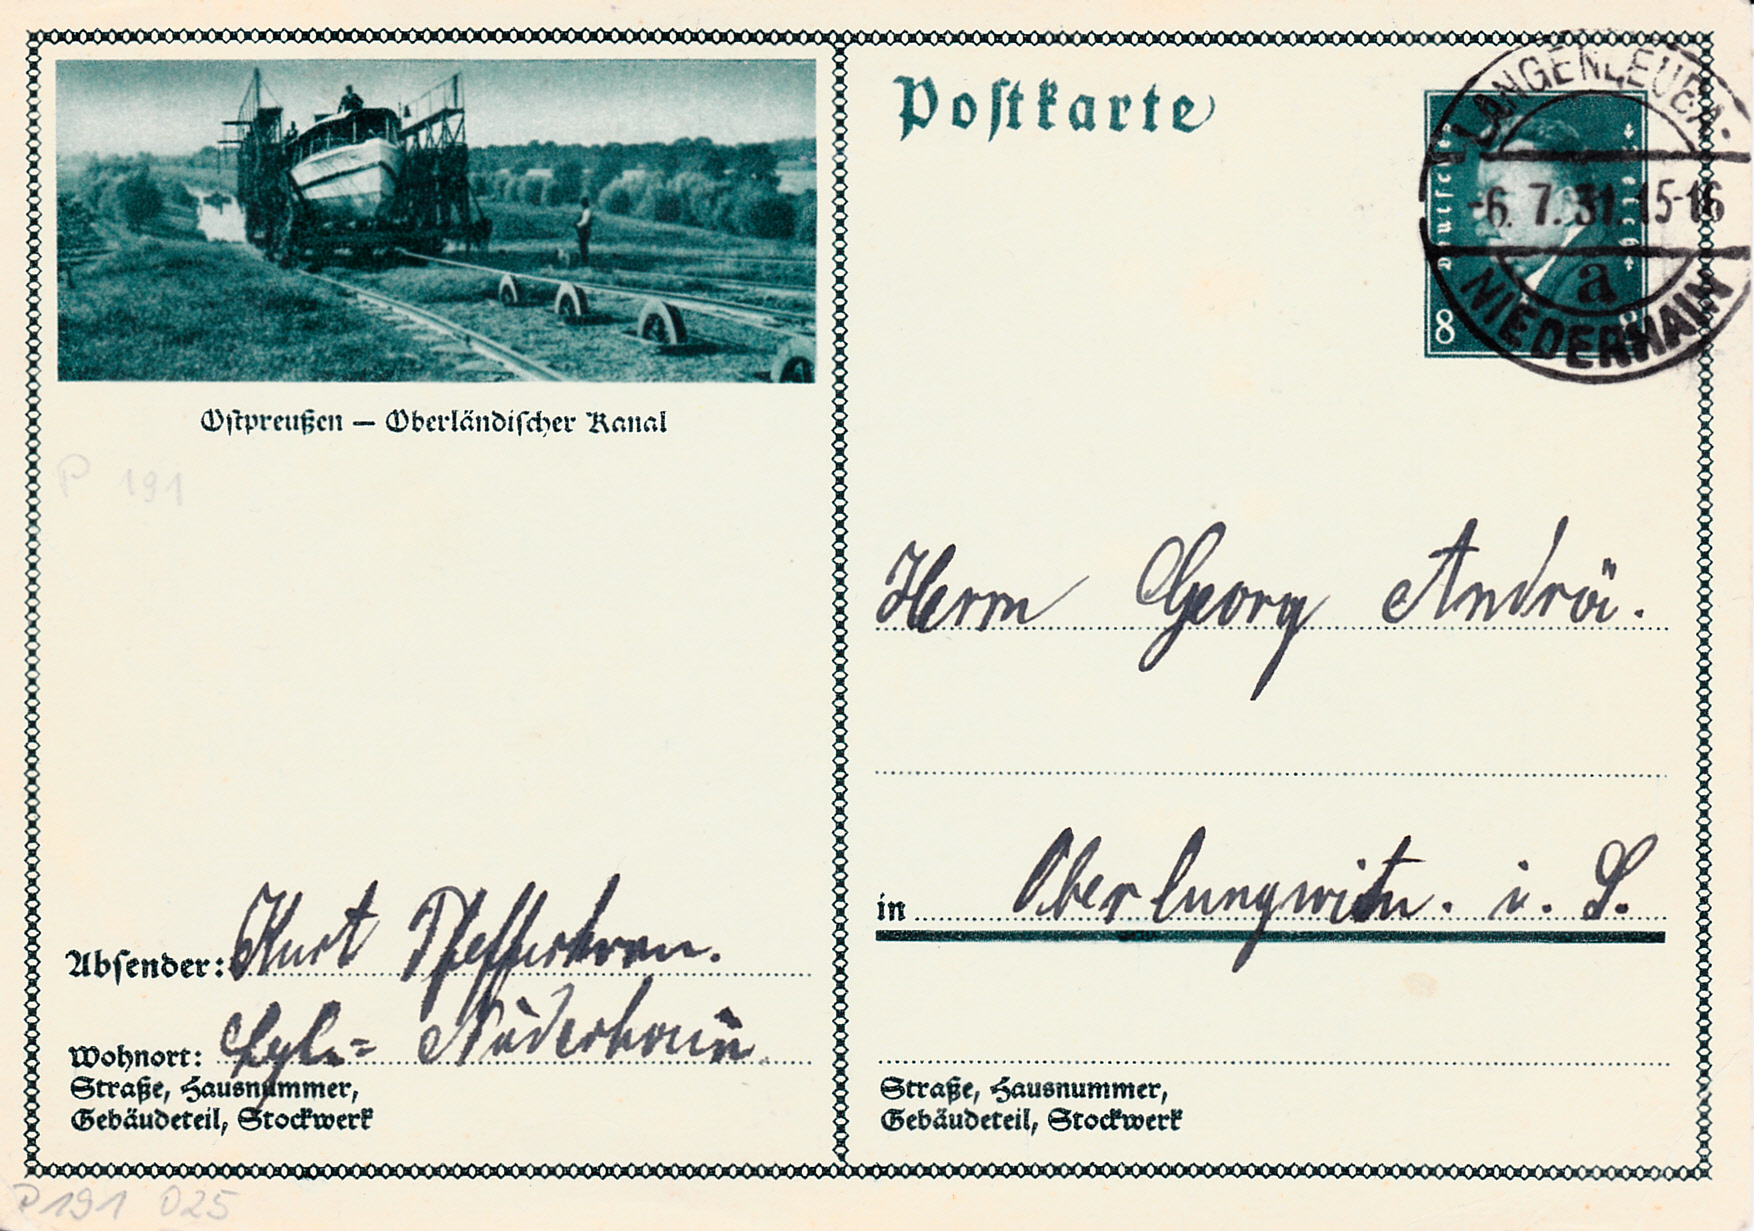 Postkarte
LANGENLEUBA-
-6.7.31.15-16
a
NIEDERHAIN
Deutsches Reich
8 8
Ostpreußen — Oberländischer Kanal
P 191
Herrn Georg Andrä.
in Oberlungwitz. i. S.
Absender: Kurt Pfefferkorn.
Wohnort: Lgla- Niederhain
Straße, Hausnummer,
Gebäudeteil, Stockwerk
Straße, Hausnummer,
Gebäudeteil, Stockwerk
P191 025